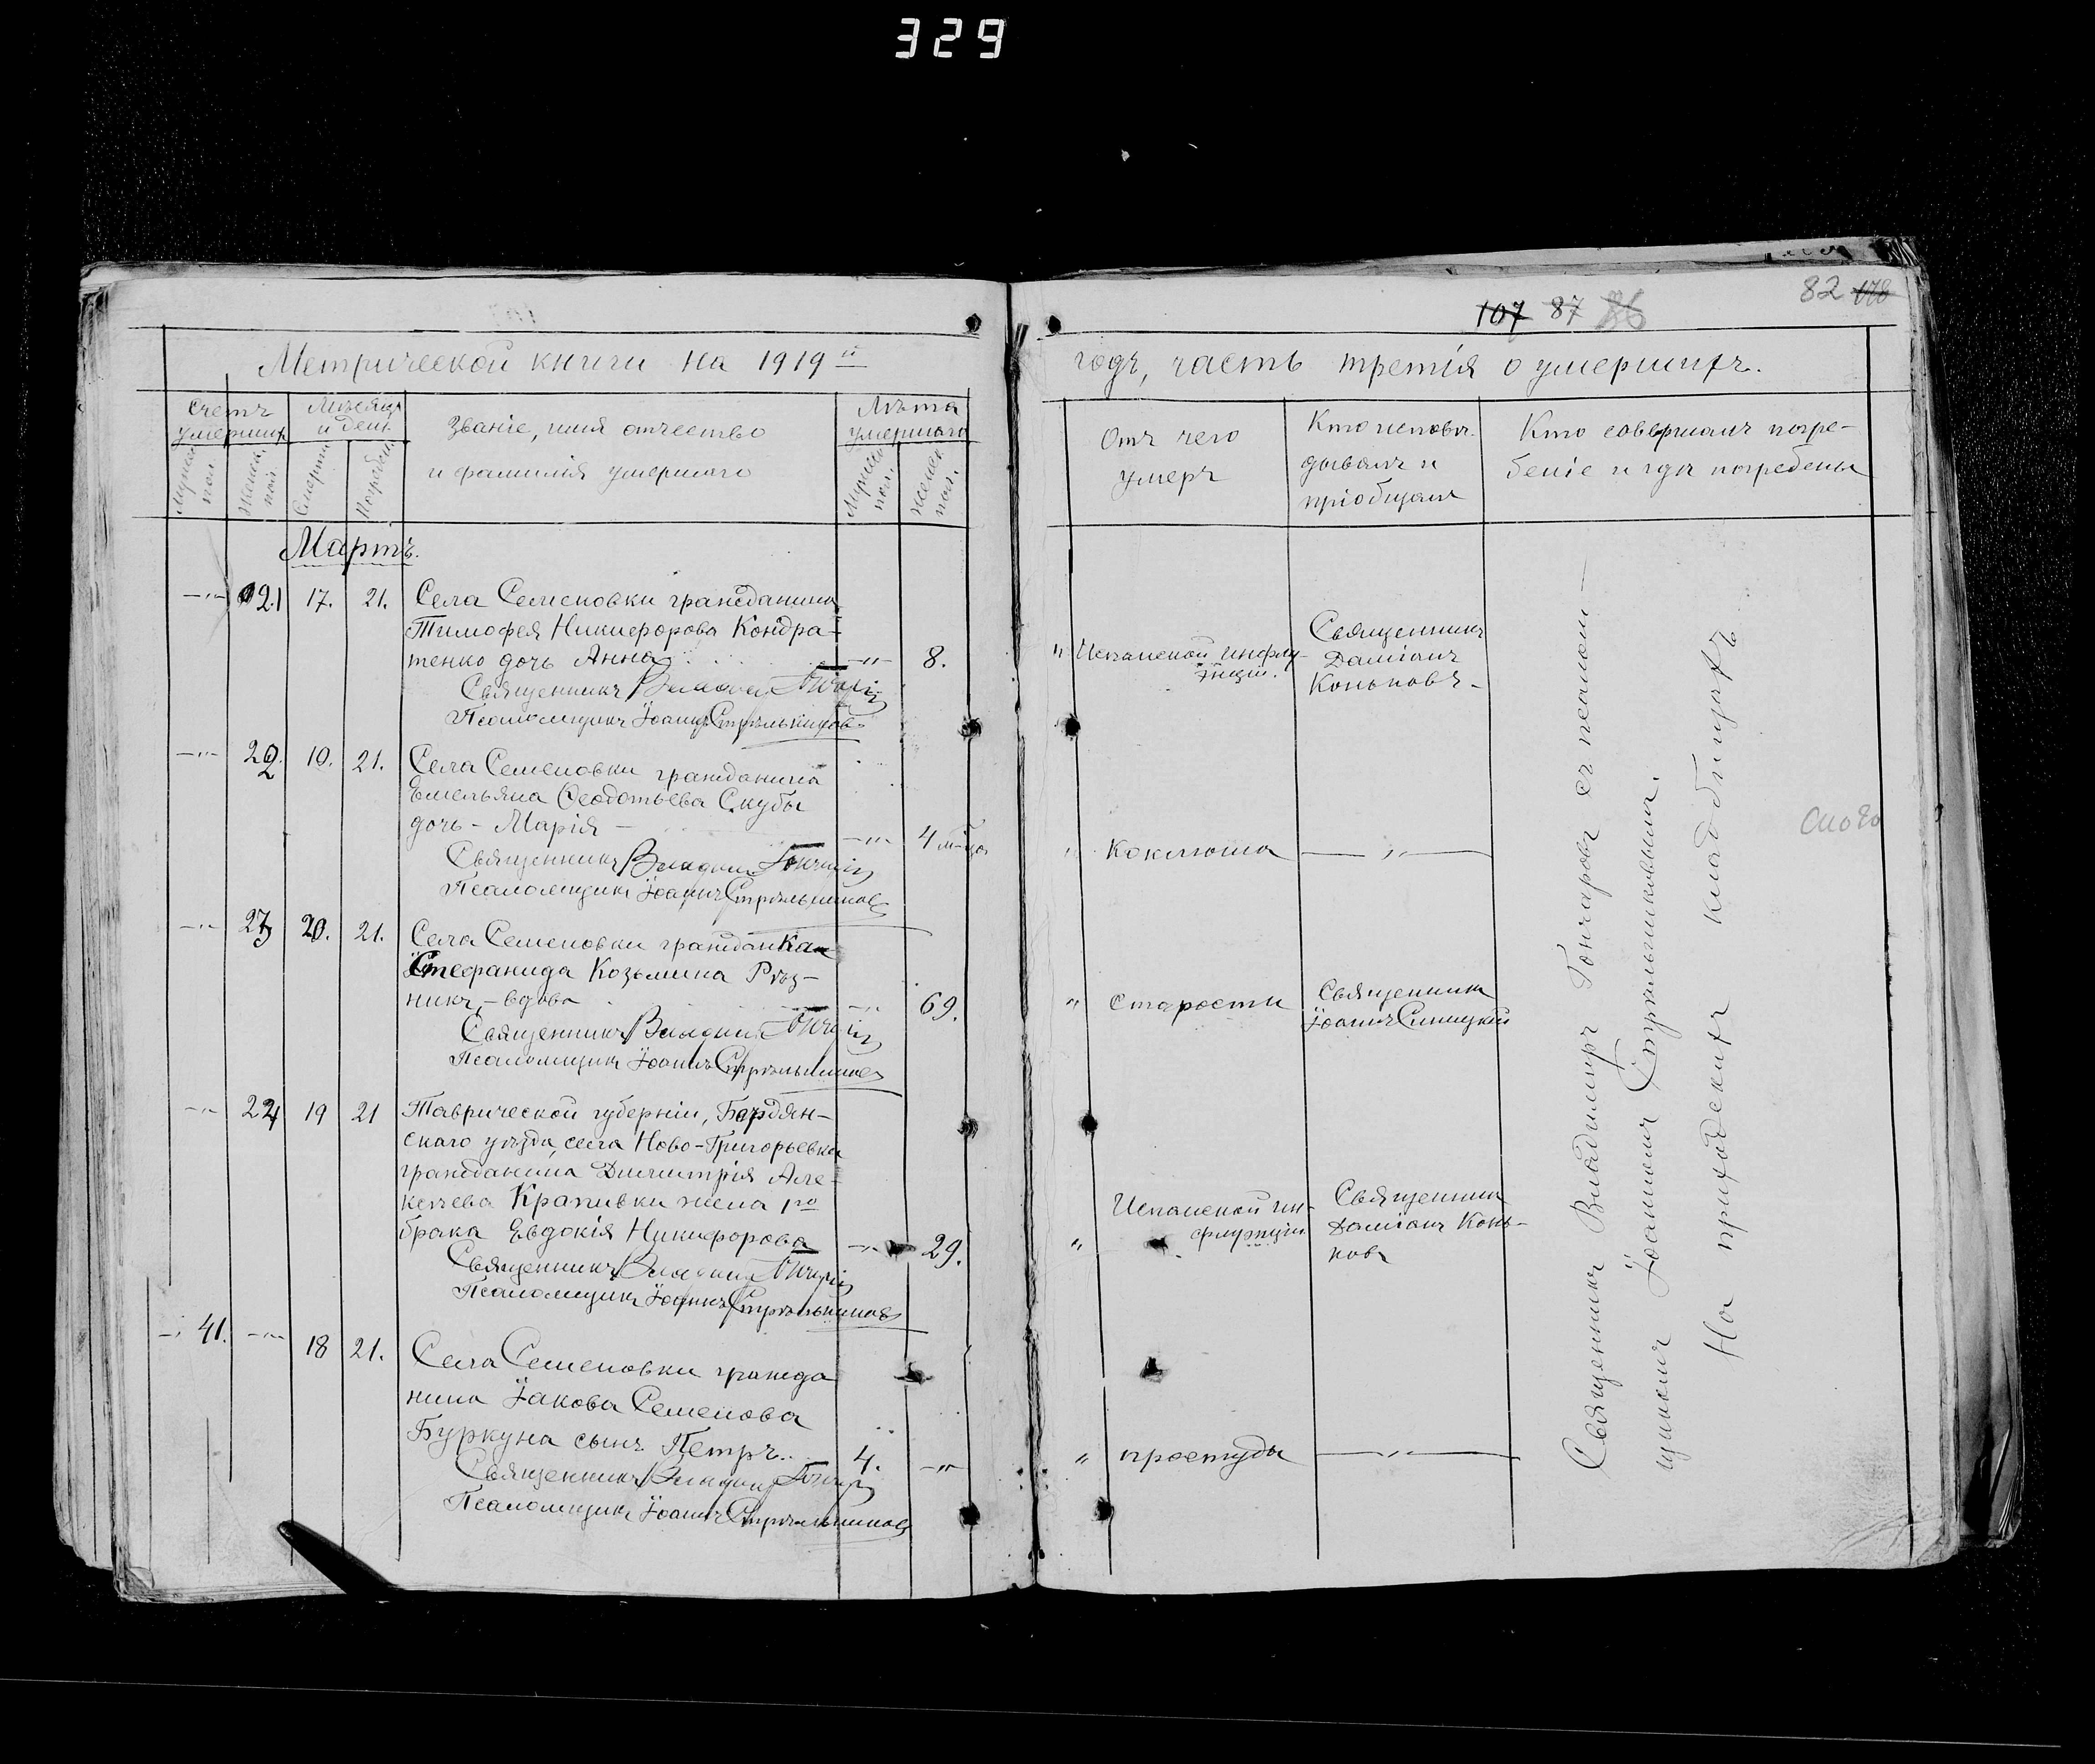 329
107 87 86
82 108
Метрической книги на 1919й
годъ, часть третія о умершихъ.
Счетъ умершихъ
Мужск. пол.
Женск. пол.
Мѣсяцъ и день
Смерти
Погребен.
Званіе, имя отчество
и фамилія умершаго
Лѣта умершаго
Мужеск. пол.
Женск. пол.
Отъ чего
умеръ
Кто исповѣ-
дывалъ и
пріобщалъ
Кто совершалъ погре-
беніе и гдѣ погребены
Мартъ.
—"— 21 17. 21. Села Семеновки гражданина
Тимофея Никифорова Кондра-
тенко дочь Анна —"— 8.
Священникъ
Псаломщикъ Іоаннъ Стрѣльниковъ
" Испанской инфлу-
энціи.
Священникъ
Даміанъ
Коньковъ
—"— 22 10. 21. Села Семеновки гражданина
Емельяна Ѳеодотьева Скубы
дочь - Марія — —"— 4 м-ца
Священникъ
Псаломщикъ Іоаннъ Стрѣльниковъ
" Коклюша —"—
—"— 23 20. 21. Села Семеновки гражданка
Стефанида Козьмина Рѣз-
никъ, - вдова —"— 69.
Священникъ
Псаломщикъ Іоаннъ Стрѣльниковъ
" Старости
Священникъ
Іоаннъ Синицкій
—"— 24 19 21 Таврической губерніи, Бердян-
скаго уѣзда, села Ново-Григорьевки
гражданина Димитрія Але-
ксѣева Крапивки жена 1го
брака Евдокія Никифорова —"— 29.
Священникъ
Псаломщикъ Іоаннъ Стрѣльниковъ
" Испанской ин-
флуэнціи
Священникъ
Даміанъ Конь-
ковъ
41. —"— 18 21. Села Семеновки гражда
нина Іакова Семенова
Буркуна сынъ Петръ.. 4. —"—
Священникъ
Псаломщикъ Іоаннъ Стрѣльниковъ
" простуды —"—
Священникъ Владимиръ Гончаровъ съ псалом—
щикомъ Іоанномъ Стрѣльниковымъ.
На приходскомъ кладбищѣ